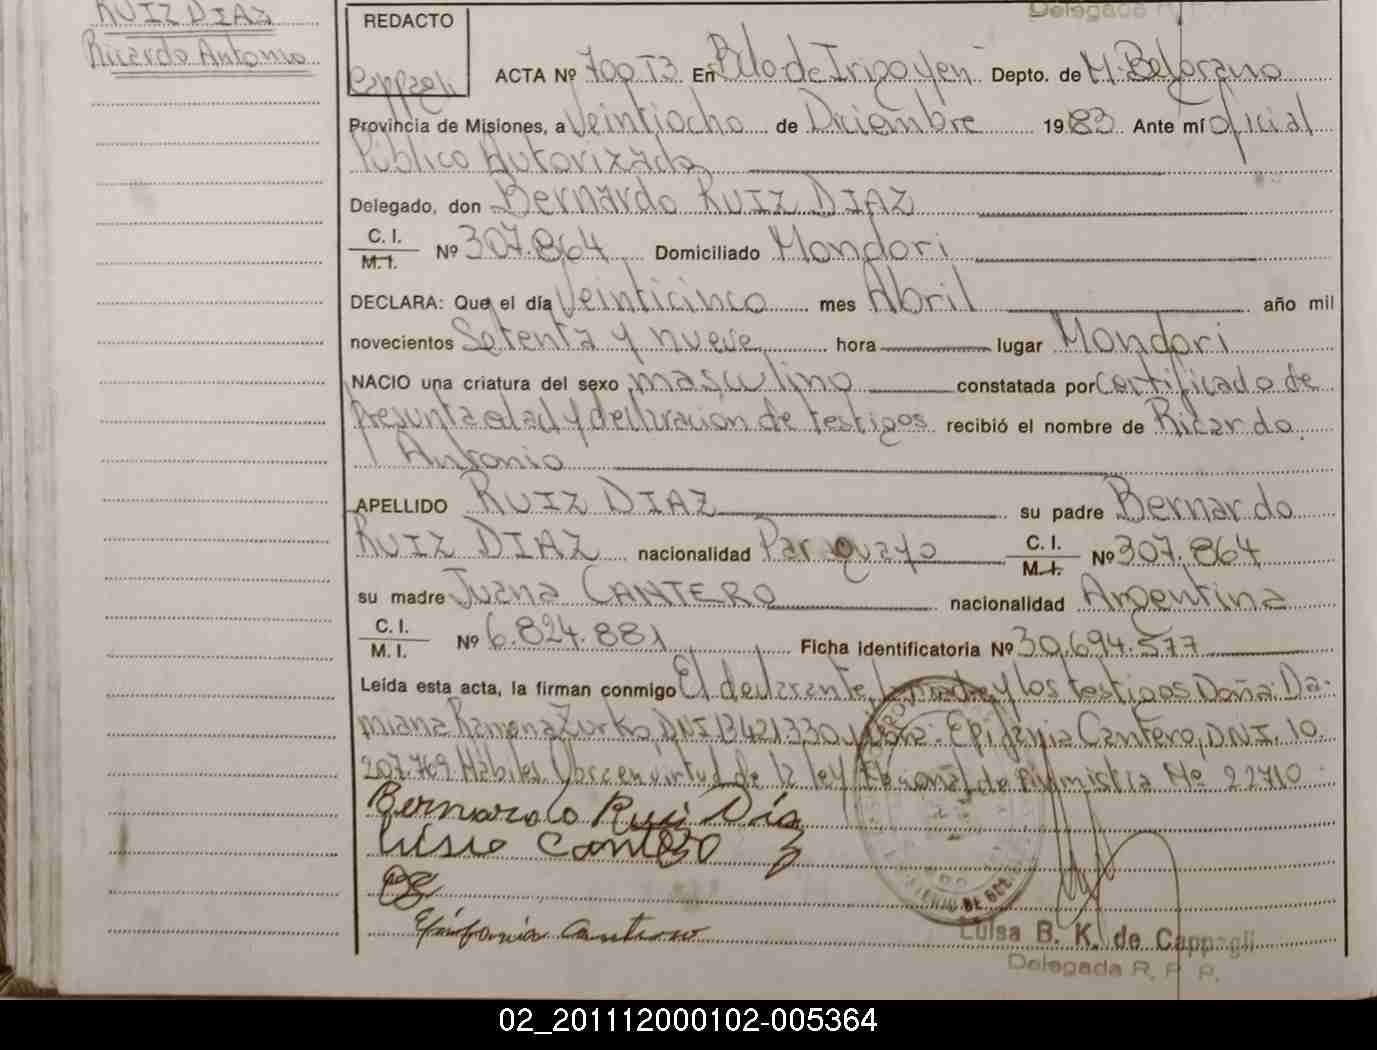 RUIZ DIAZ
Ricardo Antonio
Delegada R. P. P.
REDACTO
Cappagli
ACTA Nº 700 T3 En Bdo de Irigoyen Depto. de M. Belgrano
Provincia de Misiones, a Veintiocho de Diciembre 1983 Ante mí oficial
Público Autorizado
Delegado, don Bernardo RUIZ DIAZ
C. I.
M. I. Nº 307.864 Domiciliado Mondori
DECLARA: Que el día Veinticinco mes Abril año mil
novecientos Setenta y nueve hora lugar Mondori
NACIO una criatura del sexo masculino constatada por Certificado de
presunta edad y declaración de testigos recibió el nombre de Ricardo
Antonio
APELLIDO RUIZ DIAZ su padre Bernardo
RUIZ DIAZ nacionalidad Paraguayo C. I.
M. I. Nº 307.864
su madre Juana CANTERO nacionalidad Argentina
C. I.
M. I. Nº 6.824.881 Ficha identificatoria Nº 30.694.577
Leída esta acta, la firman conmigo El declarante, la madre y los testigos Doña: Da-
miana Ramona Zurko, DNI 13421330 y Doña: Epifania Cantero, DNI. 10.
207.769 Hábiles. Obra en virtud de la ley Nacional de Amnistia Nº 22710
Bernardo Ruiz Díaz
Cantero
Epifania Cantero
Luisa B. K. de Cappagli
Delegada R. P. P.
02_201112000102-005364